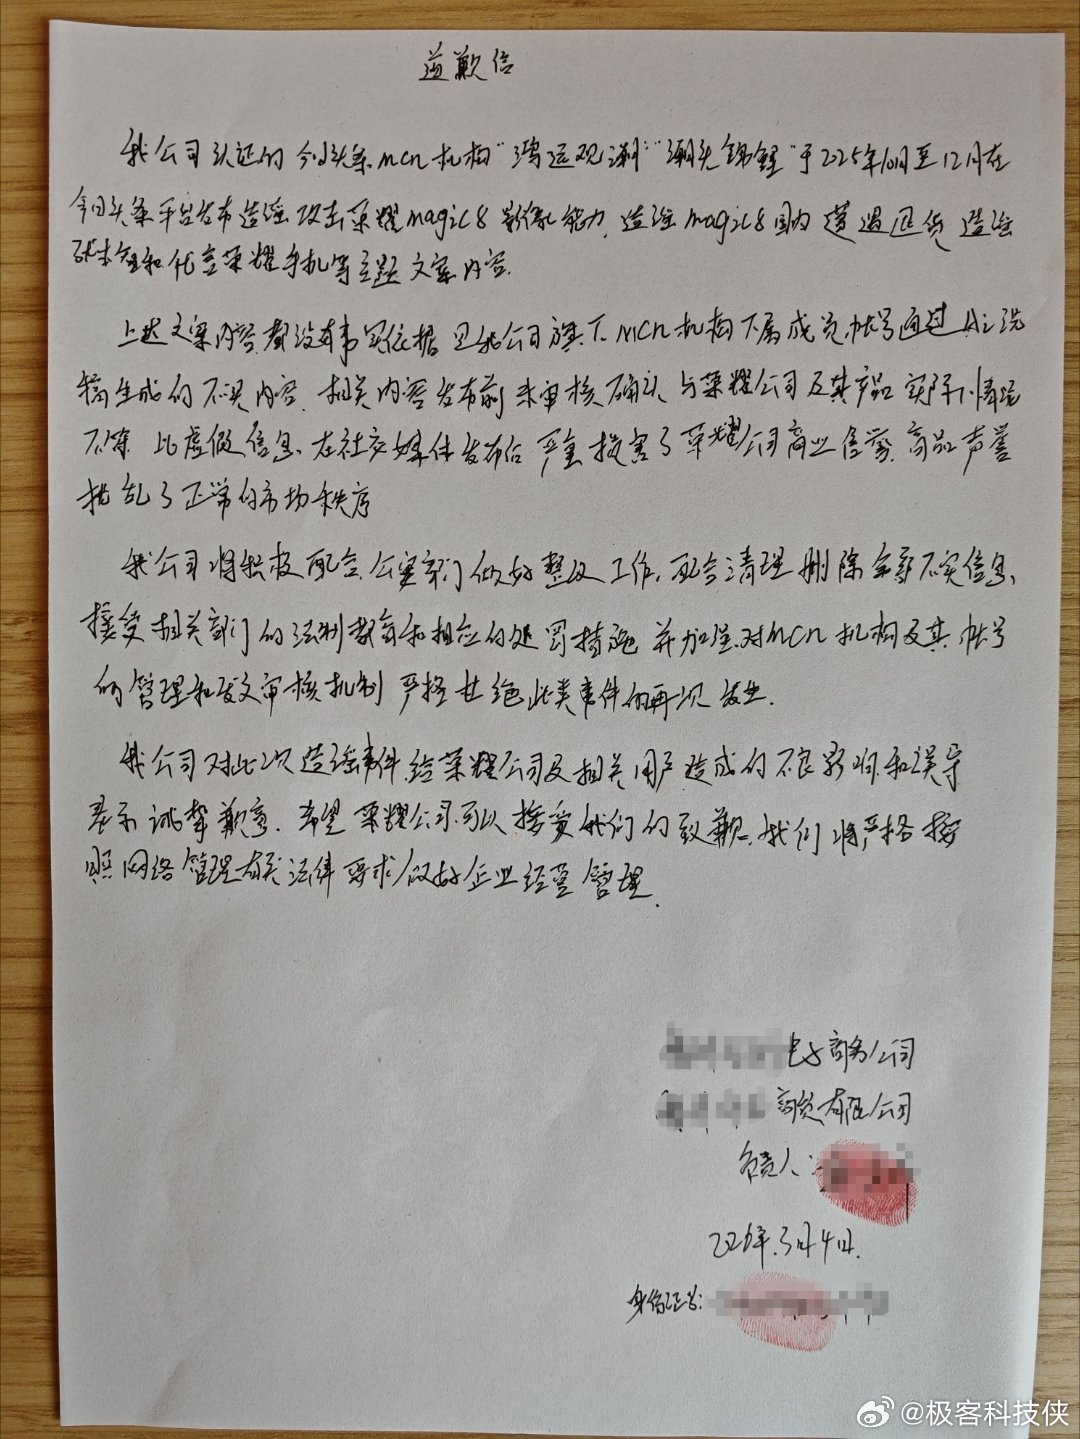 道歉信
我公司认证的今日头条mcn机构"鸿运观潮""潮头锦鲤"于2025年10月至12月在
今日头条平台发布造谣攻击荣耀magic8影像能力,造谣magic8国内遭遇退货造谣
和代言荣耀手机等主题文案内容.
上述文案内容都没有事实依据 是我公司旗下mcn机构下属成员帐号通过Ai洗
稿生成的不实内容.相关内容发布前未审核确认与荣耀公司及其产品实际情况
不符 此虚假信息在社交媒体发布后严重损害了荣耀公司商业信誉、商品声誉
扰乱了正常的市场秩序
我公司将积极配合公安部门做好整改工作,配合清理删除全部不实信息、
接受相关部门的法制教育和相应的处罚措施并加强对mcn机构及其帐号
的管理和发文审核机制 严格杜绝此类事件的再次发生.
我公司对此次造谣事件给荣耀公司及相关用户造成的不良影响和误导
表示诚挚歉意.希望荣耀公司可以接受我们的致歉.我们将严格按
照网络管理有关法律要求做好企业经营管理.
电子商务公司
商贸有限公司
负责人:
2026年.3月4日.
身份证号:
@极客科技侠